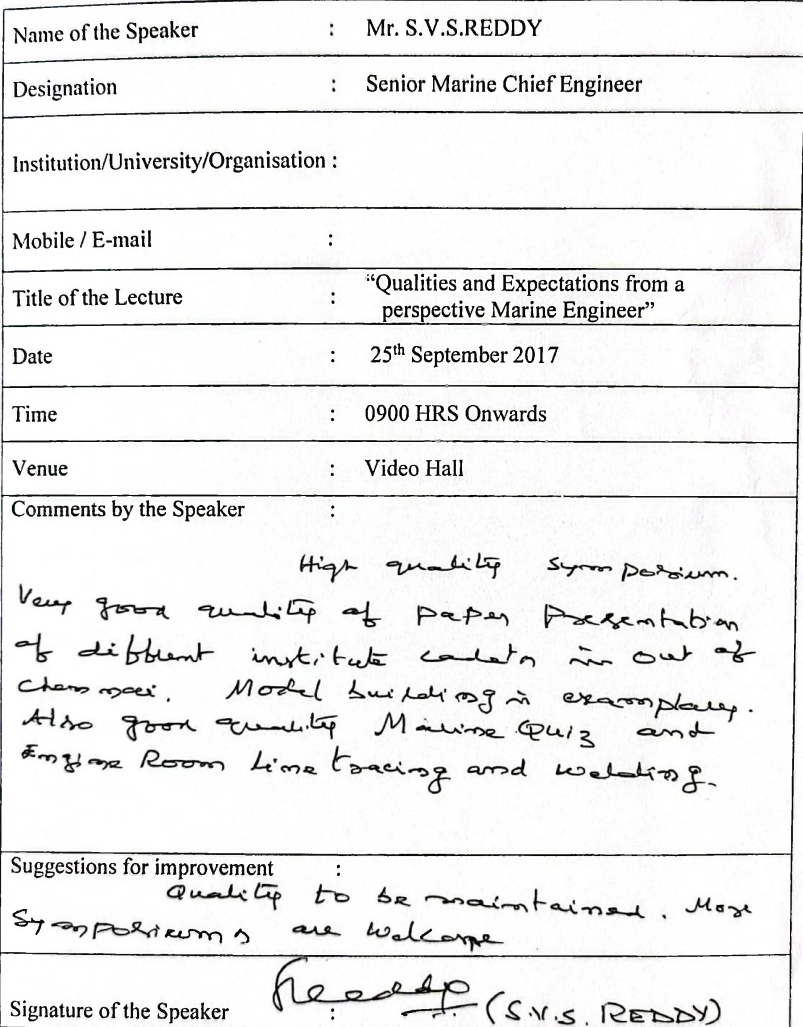 Name of the Speaker : Mr. S.V.S.REDDY
Designation : Senior Marine Chief Engineer
Institution/University/Organisation :
Mobile / E-mail :
Title of the Lecture : "Qualities and Expectations from a
perspective Marine Engineer"
Date : 25th September 2017
Time : 0900 HRS Onwards
Venue : Video Hall
Comments by the Speaker :
High quality Symposium.
Very good quality of Paper Presentation
of different institute cadets in out of
Chennai. Model building is examplary.
Also good quality Marine Quiz and
Engine Room Line tracing and welding.
Suggestions for improvement :
Quality to be maintained. More
Symposiums are Welcome
Signature of the Speaker : Reddy (S.V.S. REDDY)